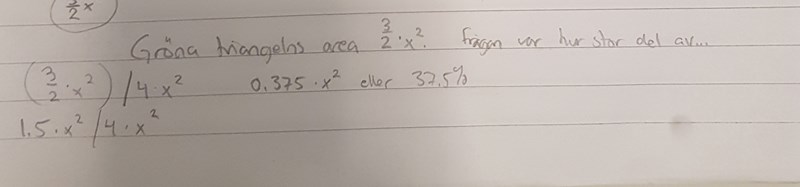 3/2 x
Gröna triangelns area 3/2 · x². frågan var hur stor del av...
(3/2 · x²) / 4 · x² 0.375 · x² eller 37,5%
1.5 · x² / 4 · x²